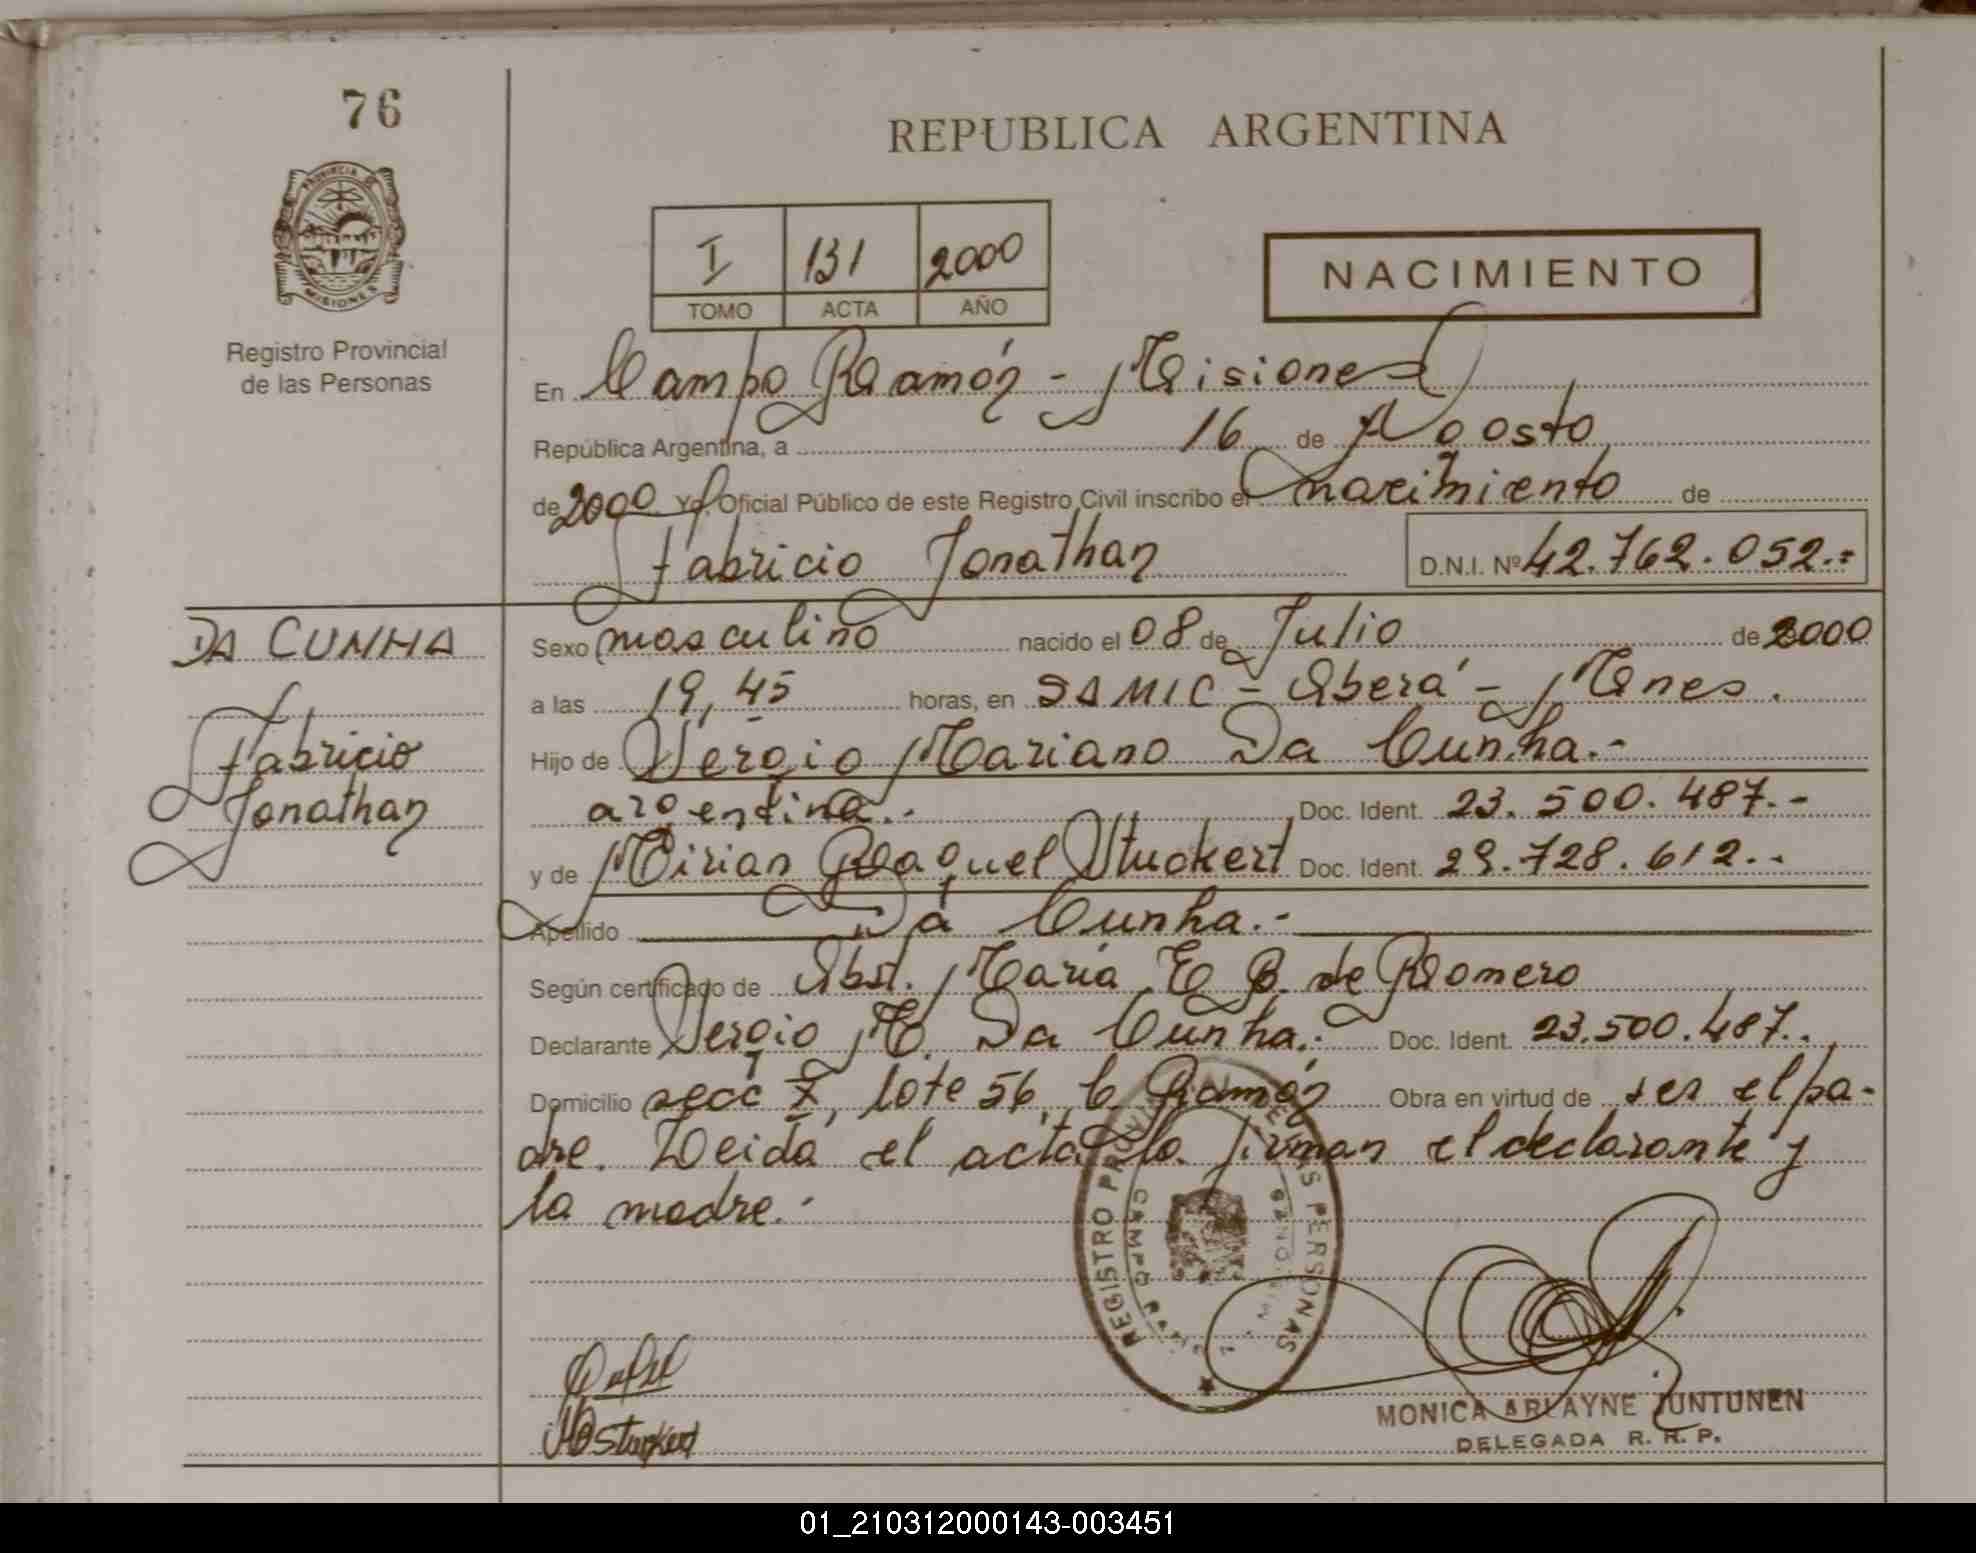 76
PROVINCIA DE
MISIONES
Registro Provincial
de las Personas
REPUBLICA ARGENTINA
I 131 2000
TOMO ACTA AÑO
NACIMIENTO
En Campo Ramón - Misiones
República Argentina, a 16 de Agosto
de 2000 Yo, Oficial Público de este Registro Civil inscribo el nacimiento de
Fabricio Jonathan D.N.I. Nº 42.762.052.-
DA CUNHA
Fabricio
Jonathan
Sexo masculino nacido el 08 de Julio de 2000
a las 19,45 horas, en SAMIC - Oberá - Mnes.
Hijo de Sergio Mariano Da Cunha.-
argentina.- Doc. Ident. 23.500.487.-
y de Mirian Raquel Stuckert Doc. Ident. 29.728.612.-
Apellido Da Cunha.-
Según certificado de Obst. María E B. de Romero
Declarante Sergio M. Da Cunha.- Doc. Ident. 23.500.487.
Domicilio secc 7, lote 56, C. Ramón Obra en virtud de ser el pa-
dre. Leida el acta la firman el declarante y
la madre.-
REGISTRO PROVINCIAL DE LAS PERSONAS
CAMPO
MONICA ARLAYNE JUNTUNEN
DELEGADA R. R. P.
01_210312000143-003451